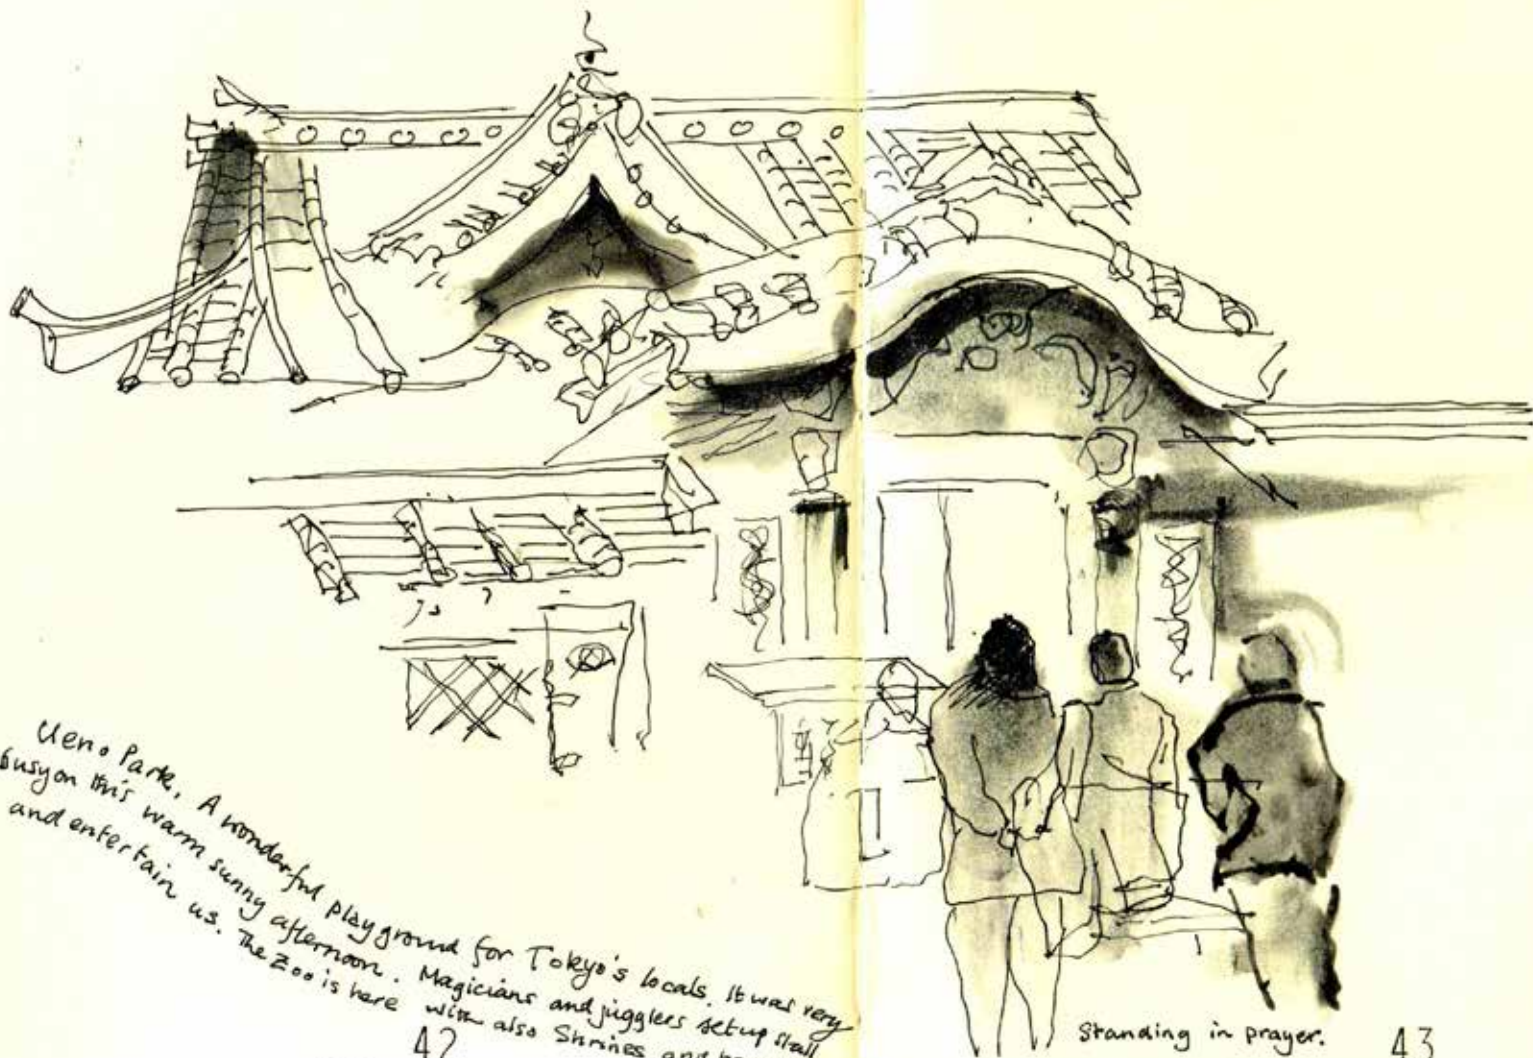 Ueno Park. A wonderful playground for Tokyo's locals. It was very
busy on this warm sunny afternoon. Magicians and jugglers set up stall
and entertain us. The Zoo is here with also Shrines and
42
Standing in prayer.
43